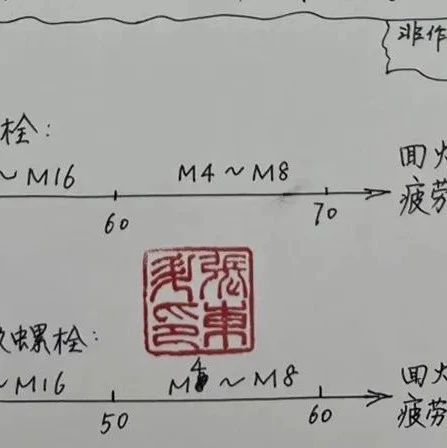 非作
栓:
~M16 M4~M8 回火
60 70 疲劳
張東
印
螺栓:
~M16 M4~M8 回火
50 60 疲劳